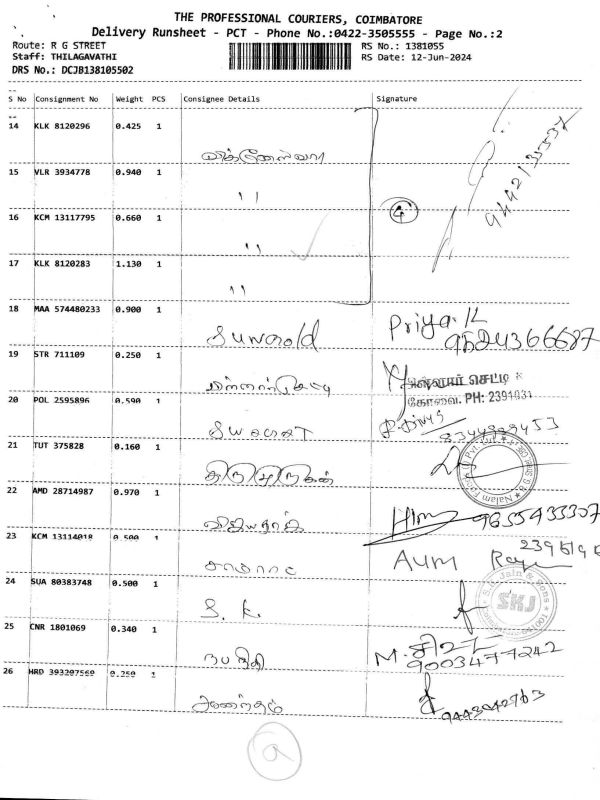 THE PROFESSIONAL COURIERS, COIMBATORE
Delivery Runsheet - PCT - Phone No.:0422-3505555 - Page No.:2
Route: R G STREET RS No.: 1381055
Staff: THILAGAVATHI RS Date: 12-Jun-2024
DRS No.: DCJB138105502
S No Consignment No Weight PCS Consignee Details Signature
14 KLK 8120296 0.425 1
15 VLR 3934778 0.940 1 "
16 KCM 13117795 0.660 1 " 4
17 KLK 8120283 1.130 1 "
18 MAA 574480233 0.900 1 Priya.K
19 STR 711109 0.250 1 செட்டி
கோவை. PH: 2391031
20 POL 2595896 0.590 1
21 TUT 375828 0.160 1 திருமுருகன்
22 AMD 28714987 0.970 1 விஜயராஜ் 9655433307
23 KCM 13114018 0.500 1 AUM
24 SUA 80383748 0.500 1 S. K. S.K. Jain & Sons
SKJ
25 CNR 1801069 0.340 1 நபநிதி M.
9003477242
26 HRD 393207569 0.250 1 9443042763
9